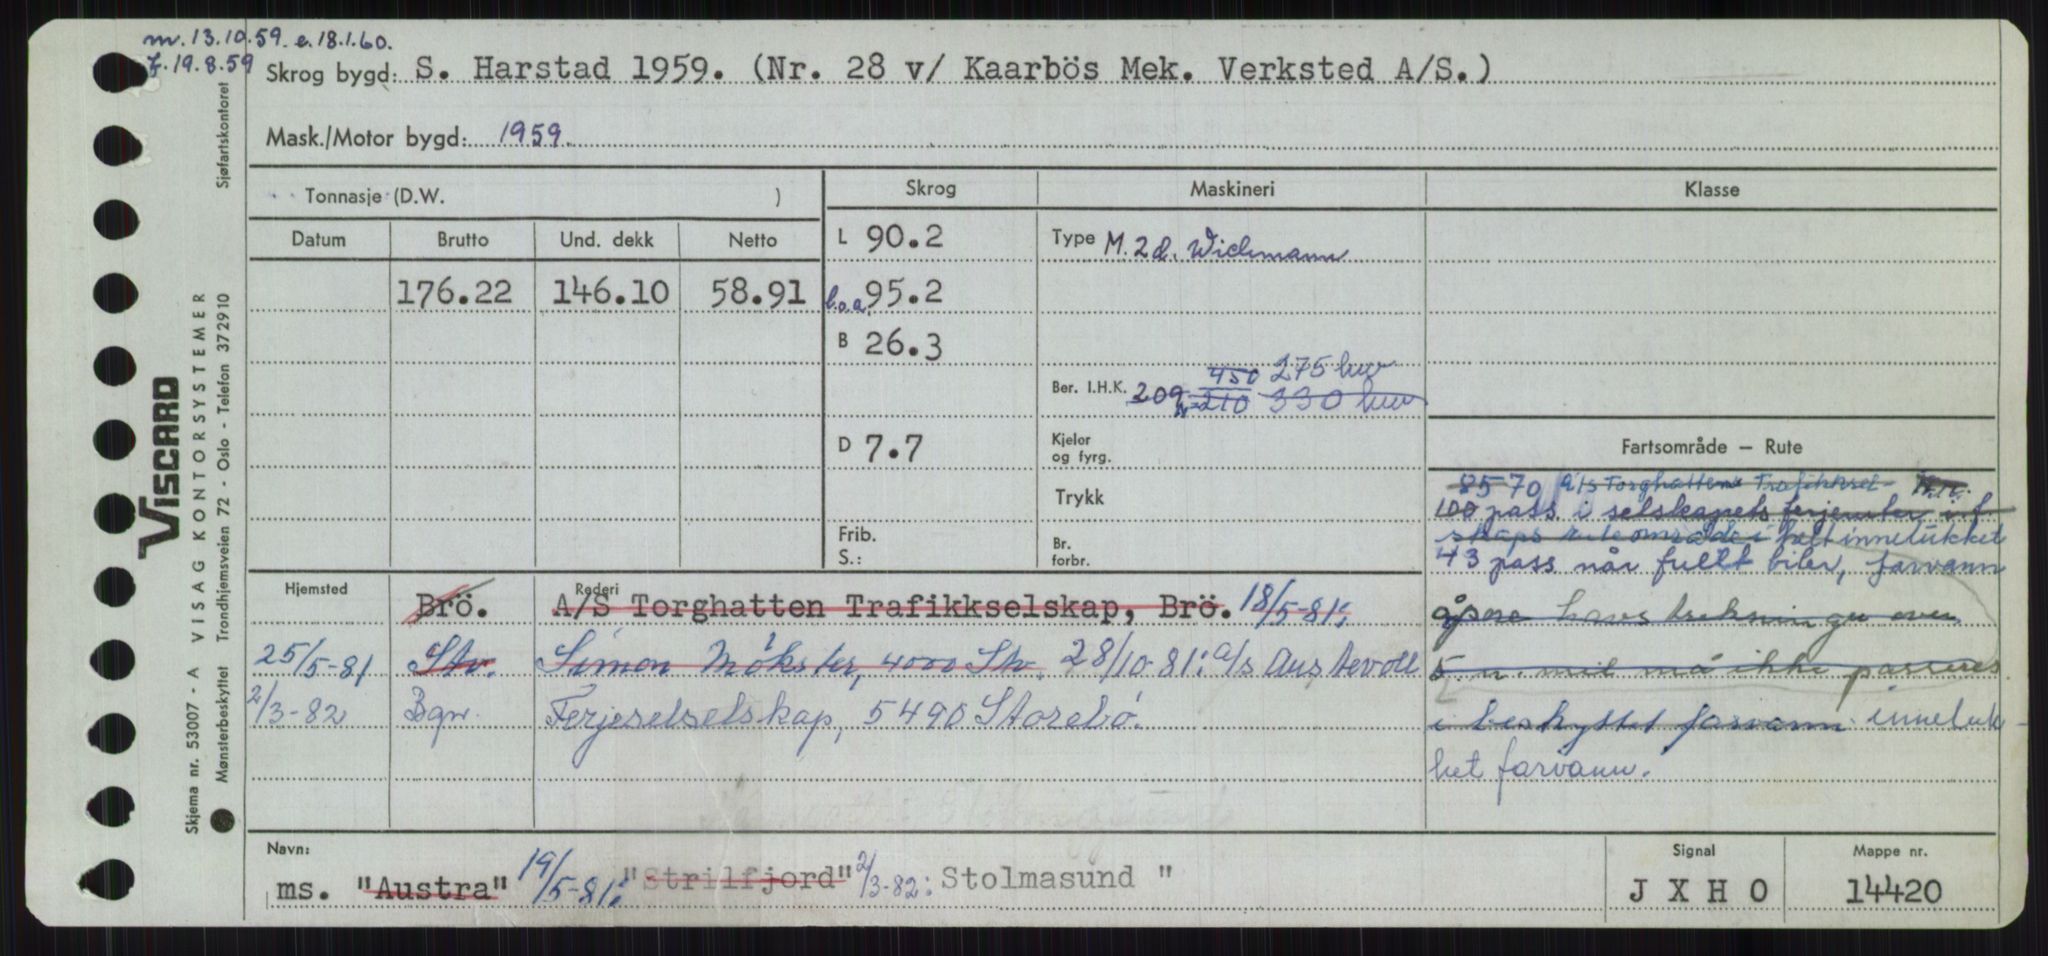 m. 13.10.59. e. 18.1.60.
f. 19.8.59
Skrog bygd: S. Harstad 1959. (Nr. 28 v/ Kaarbös Mek. Verksted A/S.)
Mask./Motor bygd: 1959.
Tonnasje (D.W. )
Skrog
Maskineri
Klasse
Datum
Brutto
Und. dekk
Netto
L 90.2
Type M. 2d. Wichmann
176.22
146.10
58.91
l.o.a. 95.2
B 26.3
450 275 hw
Ber. I.H.K. 209 N=210 330 hw
D 7.7
Kjelor
og fyrg.
Fartsområde – Rute
Trykk
85 70 A/s Torghatten Trafikksel-
100 pass i selskapets
Frib.
S.:
Br.
forbr.
skaps ruteområde i helt innelukket
43 pass når fullt biler, farvann
Hjemsted
Rederi
Brö. A/S Torghatten Trafikkselskap, Brö. 18/5-81:
åpne havstrekninger over
25/5-81 Stv. Simon Møkster, 4000 Stv. 28/10 81: a/s Austevoll
5 n. mil må ikke passeres
2/3-82 Bgn. Ferjeselselskap, 5490 Storebø.
i beskyttet farvann. inneluk-
ket farvann.
Navn:
ms. "Austra" 19/5-81: "Strilfjord" 2/3-82: Stolmasund "
Signal
J X H O
Mappe nr.
14420
Sjøfartskontoret
VISCARD
VISAG KONTORSYSTEMER
Trondhjemsveien 72 - Oslo - Telefon 372910
Skjema nr. 53007 - A
Mønsterbeskyttet